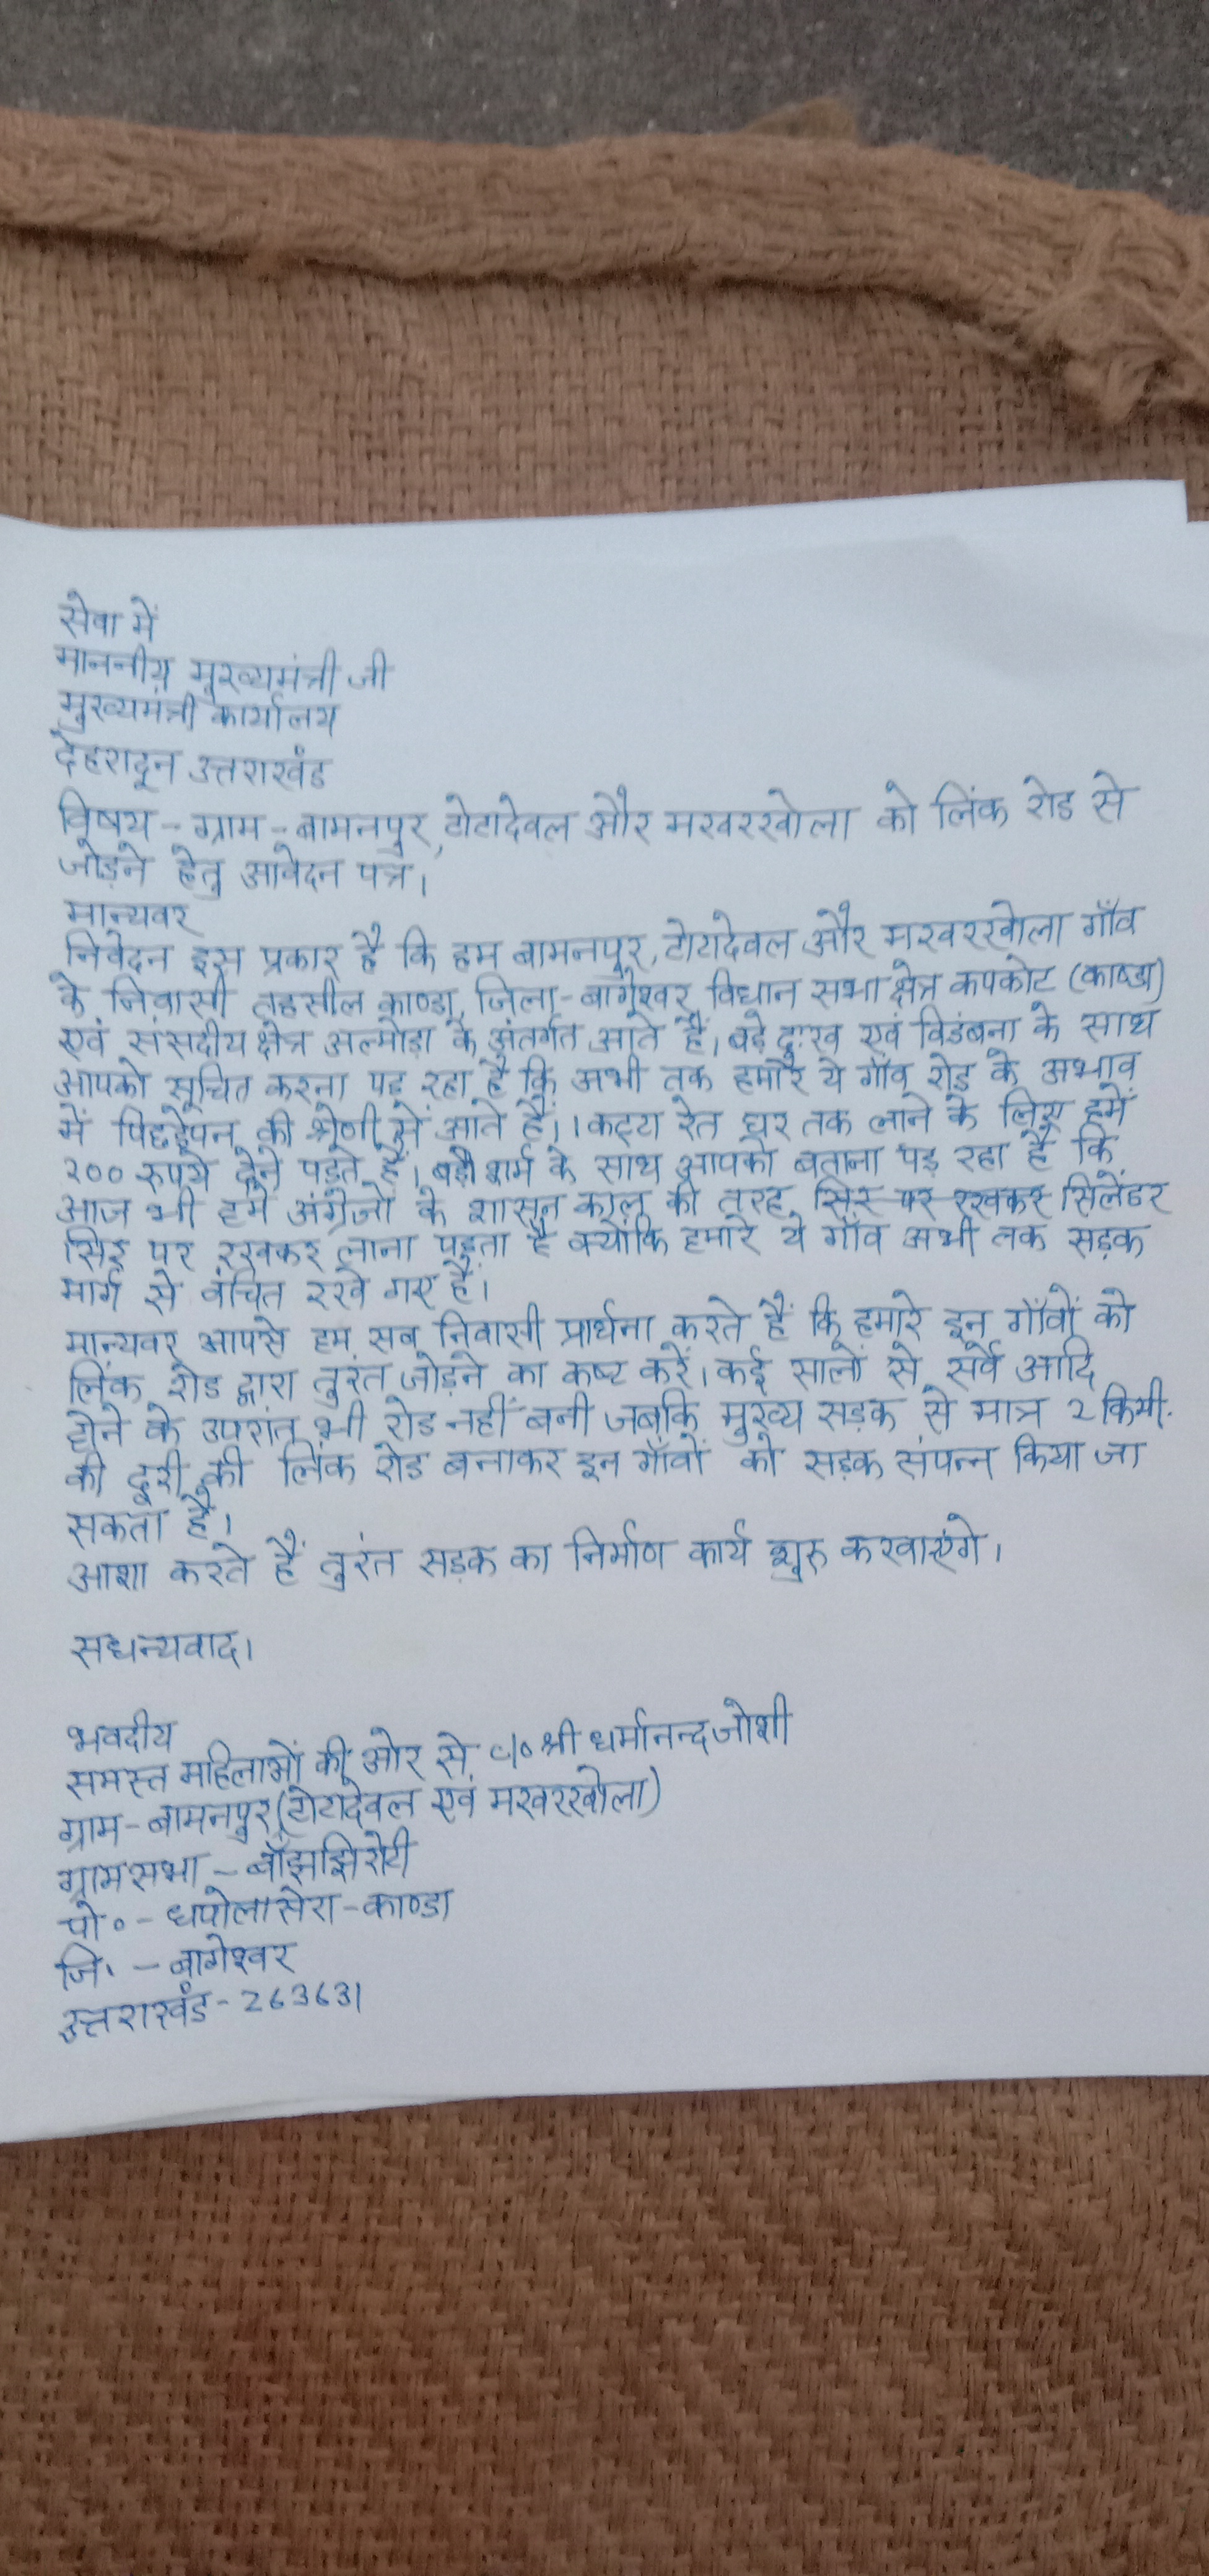 सेवा में
माननीय मुख्यमंत्री जी
मुख्यमंत्री कार्यालय
देहरादून उत्तराखंड
विषय - ग्राम - बामनपुर, टोटादेवल और मखरखोला को लिंक रोड से
जोड़ने हेतु आवेदन पत्र।
मान्यवर
निवेदन इस प्रकार है कि हम बामनपुर, टोटादेवल और मखरखोला गाँव
के निवासी तहसील काण्डा, जिला - बागेश्वर विधान सभा क्षेत्र कपकोट (काण्डा)
एवं संसदीय क्षेत्र अल्मोड़ा के अंतर्गत आते हैं। बड़े दुःख एवं विडंबना के साथ
आपको सूचित करना पड़ रहा है कि अभी तक हमारे ये गाँव रोड के अभाव
में पिछड़ेपन की श्रेणी में आते हैं। 1 कट्टा रेत घर तक लाने के लिए हमें
२०० रुपये देने पड़ते हैं। बड़ी शर्म के साथ आपको बताना पड़ रहा है कि
आज भी हमें अंग्रेजों के शासन काल की तरह सिर पर रखकर सिलेंडर
सिर पर रखकर लाना पड़ता है क्योंकि हमारे ये गाँव अभी तक सड़क
मार्ग से वंचित रखे गए हैं।
मान्यवर आपसे हम सब निवासी प्रार्थना करते हैं कि हमारे इन गाँवों को
लिंक रोड द्वारा तुरंत जोड़ने का कष्ट करें। कई सालों से सर्वे आदि
होने के उपरांत भी रोड नहीं बनी जबकि मुख्य सड़क से मात्र 2 किमी.
की दूरी की लिंक रोड बनाकर इन गाँवों को सड़क संपन्न किया जा
सकता है।
आशा करते हैं तुरंत सड़क का निर्माण कार्य शुरु करवाएंगे।
सधन्यवाद।
भवदीय
समस्त महिलाओं की ओर से c/o श्री धर्मानन्द जोशी
ग्राम - बामनपुर (टोटादेवल एवं मखरखोला)
ग्रामसभा - बाँझझिरोटी
पो० - धपोलासेरा - काण्डा
जि. - बागेश्वर
उत्तराखंड - 263631